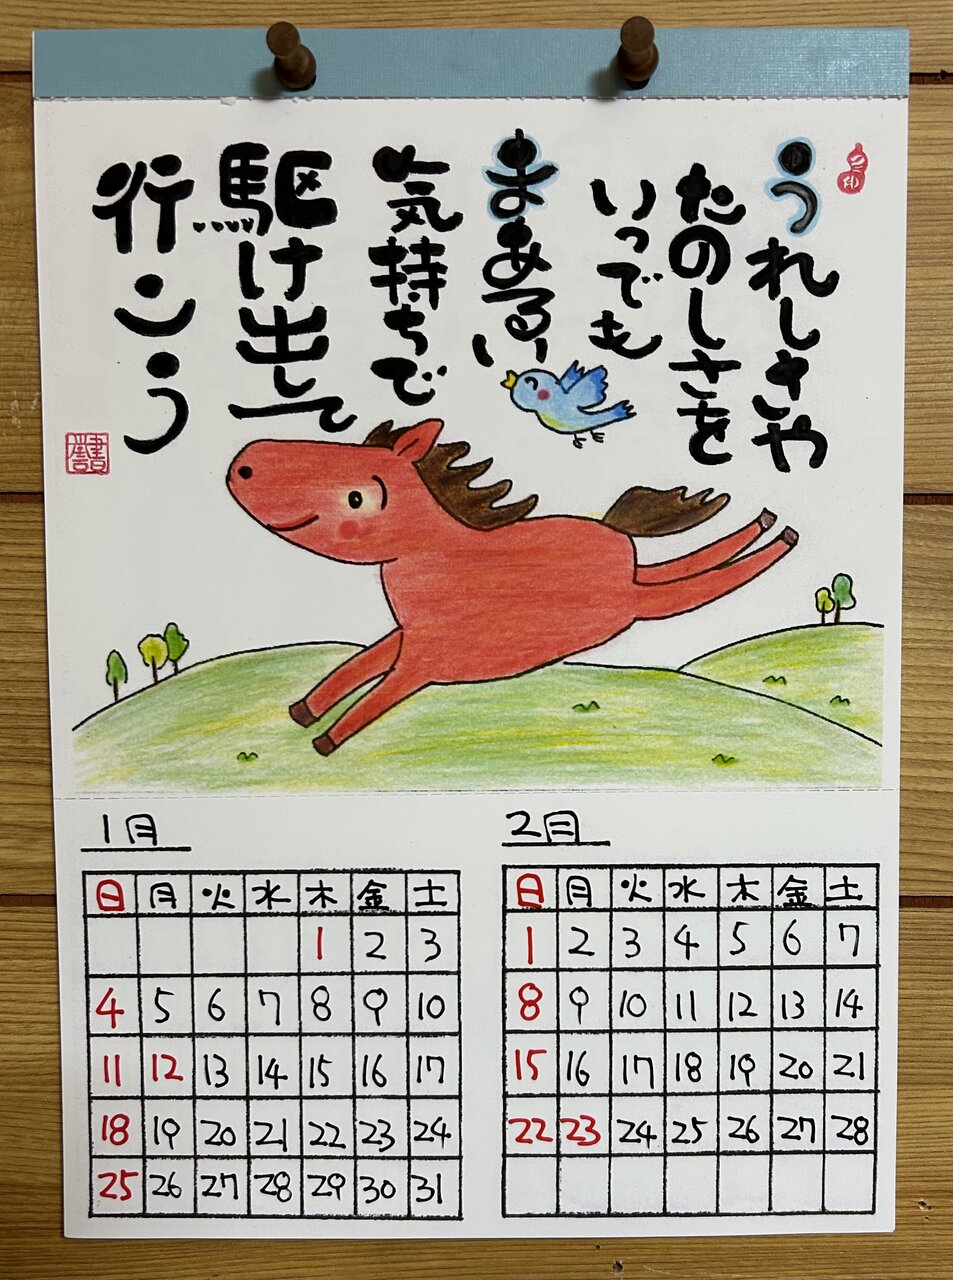 うれしさや
たのしさを
いつでも
まあるい
気持ちで
駆け出して
行こう
1月
日 月 火 水 木 金 土
1 2 3
4 5 6 7 8 9 10
11 12 13 14 15 16 17
18 19 20 21 22 23 24
25 26 27 28 29 30 31
2月
日 月 火 水 木 金 土
1 2 3 4 5 6 7
8 9 10 11 12 13 14
15 16 17 18 19 20 21
22 23 24 25 26 27 28